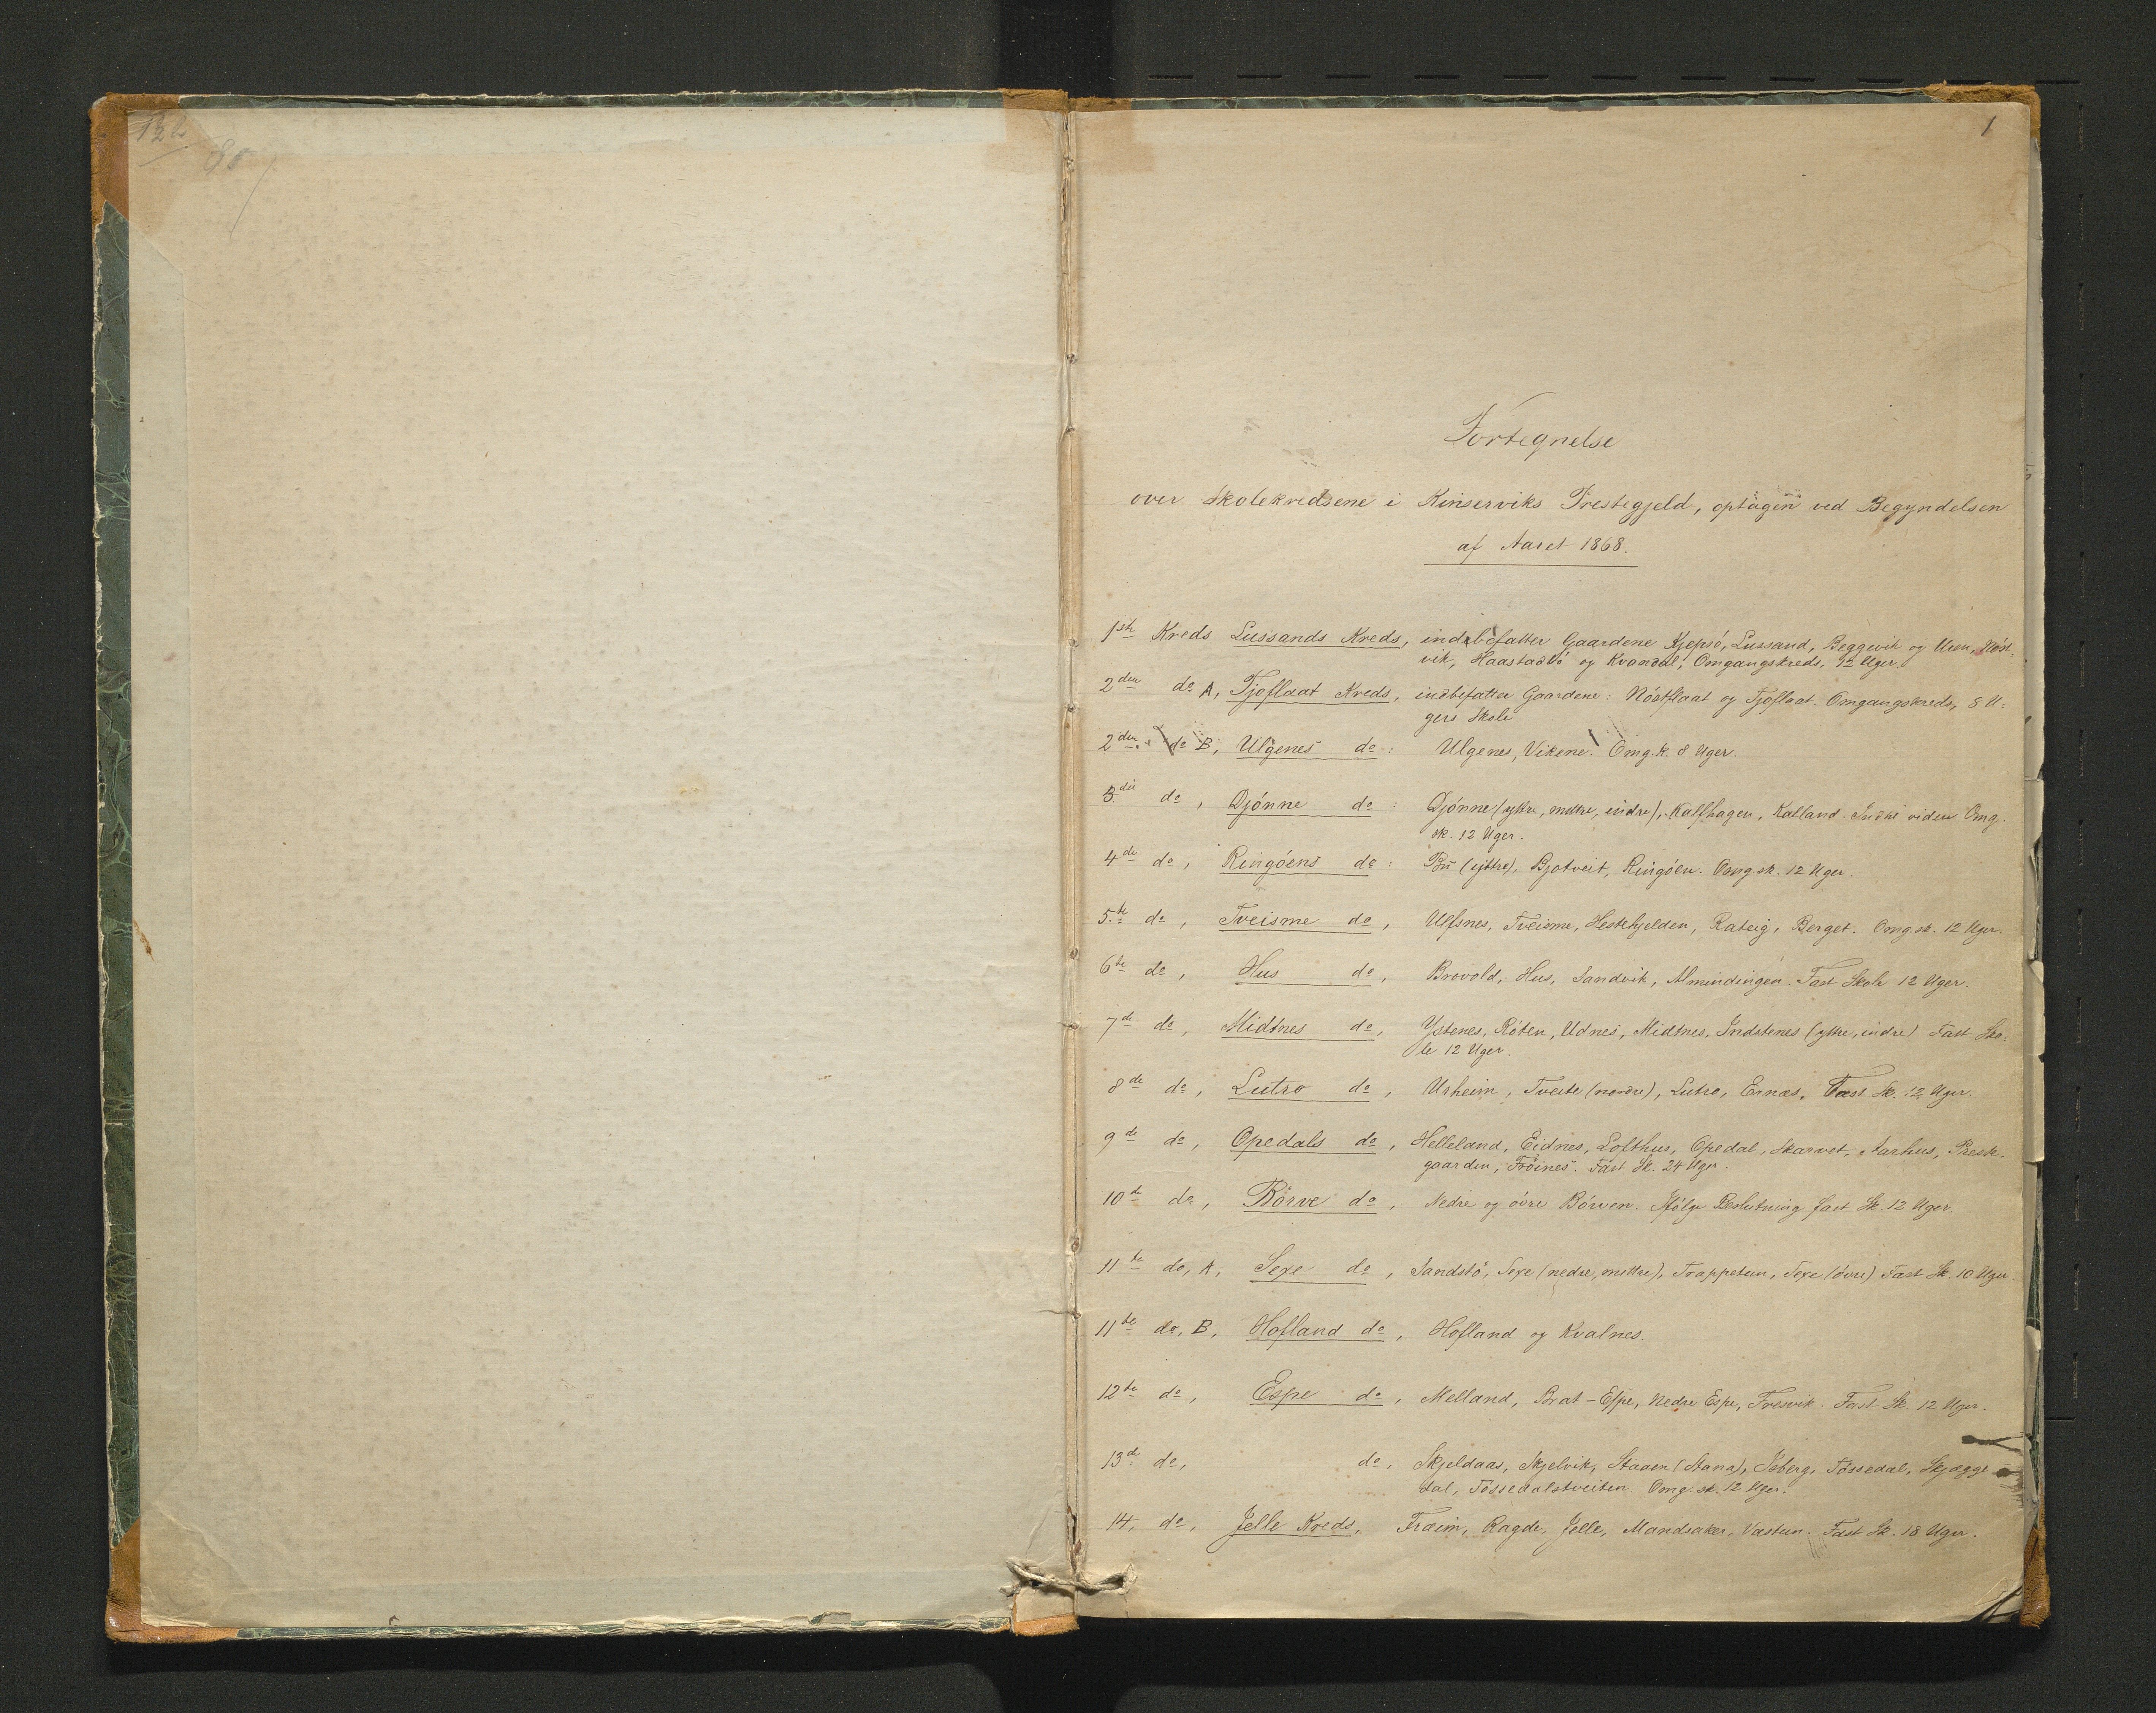 1
Fortegnelse
over Skolekredsene i Kinserviks Prestegjeld, optagen ved Begyndelsen
af Aaret 1868.
1ste Kreds Lussands Kreds, indebefatter Gaardene Kjepsó, Lussand, Beggevik og Uren, Nóst,
vik, Haastabbó og Kvandal; Omgangskreds, 12 Uger.
2den do A, Tjoflaat Kreds, indbefatter Gaardene: Nóstflaat og Tjoflaat. Omgangskreds, 8 U-
gers Skole
2den do B, Ulgenes do: Ulgenes, Vikene. Omg.k. 8 Uger.
3die do, Djónne do: Djónne (yttre, mittre, indre), Kalfhagen, Kalland. Indtil viden Omg.
sk. 12 Uger.
4de do, Ringóens do: Bu (ijttre), Bjotveit, Ringóen. Omg.sk. 12 Uger.
5te do, Tveisme do, Ulfsnes, Tveisme, Hestehjelden, Rateig, Berget. Omg.sk. 12 Uger.
6te do, Hus do, Brovold, Hus, Sandvik, Almindingen. Fast Skole 12 Uger.
7de do, Midtnes do, Ystenes, Róten, Udnes, Midtnes, Indstenes (yttre, indre) Fast Sko-
le 12 Uger.
8de do, Lutro do, Urheim, Tveite (nordre), Lutro, Ernæs, Fast Sk. 12 Uger.
9de do, Opedals do, Helleland, Eidnes, Lofthus, Opedal, Skarvet, Aarhus, Preste-
gaarden, Fróines. Fast Sk. 24 Uger.
10de do, Bórve do, Nedre og óvre Bórven. Ifólge Beslutning fast Sk. 12 Uger.
11te do, A, Sexe do, Sandstó, Sexe (nedre, mittre), Trappetun, Sexe (óvre) Fast Sk. 10 Uger.
11te do, B, Hofland do, Hofland og Kvalnes.
12te do, Espe do, Melland, Brat-Espe, Nedre Espe, Tresvik. Fast Sk. 12 Uger.
13de do, do, Skjeldaas, Skjelvik, Staaen (Stana), Isberg, Tóssedal, Skjægge
dal, Tóssedalstveiten Omg.sk. 12 Uger.
14, do, Jelle Kreds, Fræim, Ragde, Jelle, Mandsaker, Vastun. Fast Sk. 18 Uger.